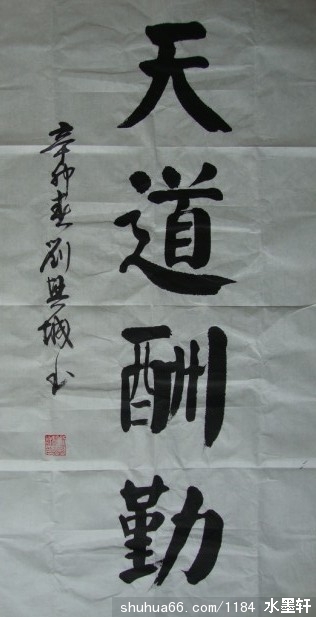 天道酬勤
辛卯春刘兴城书
shuhua66.com/1184 水墨轩